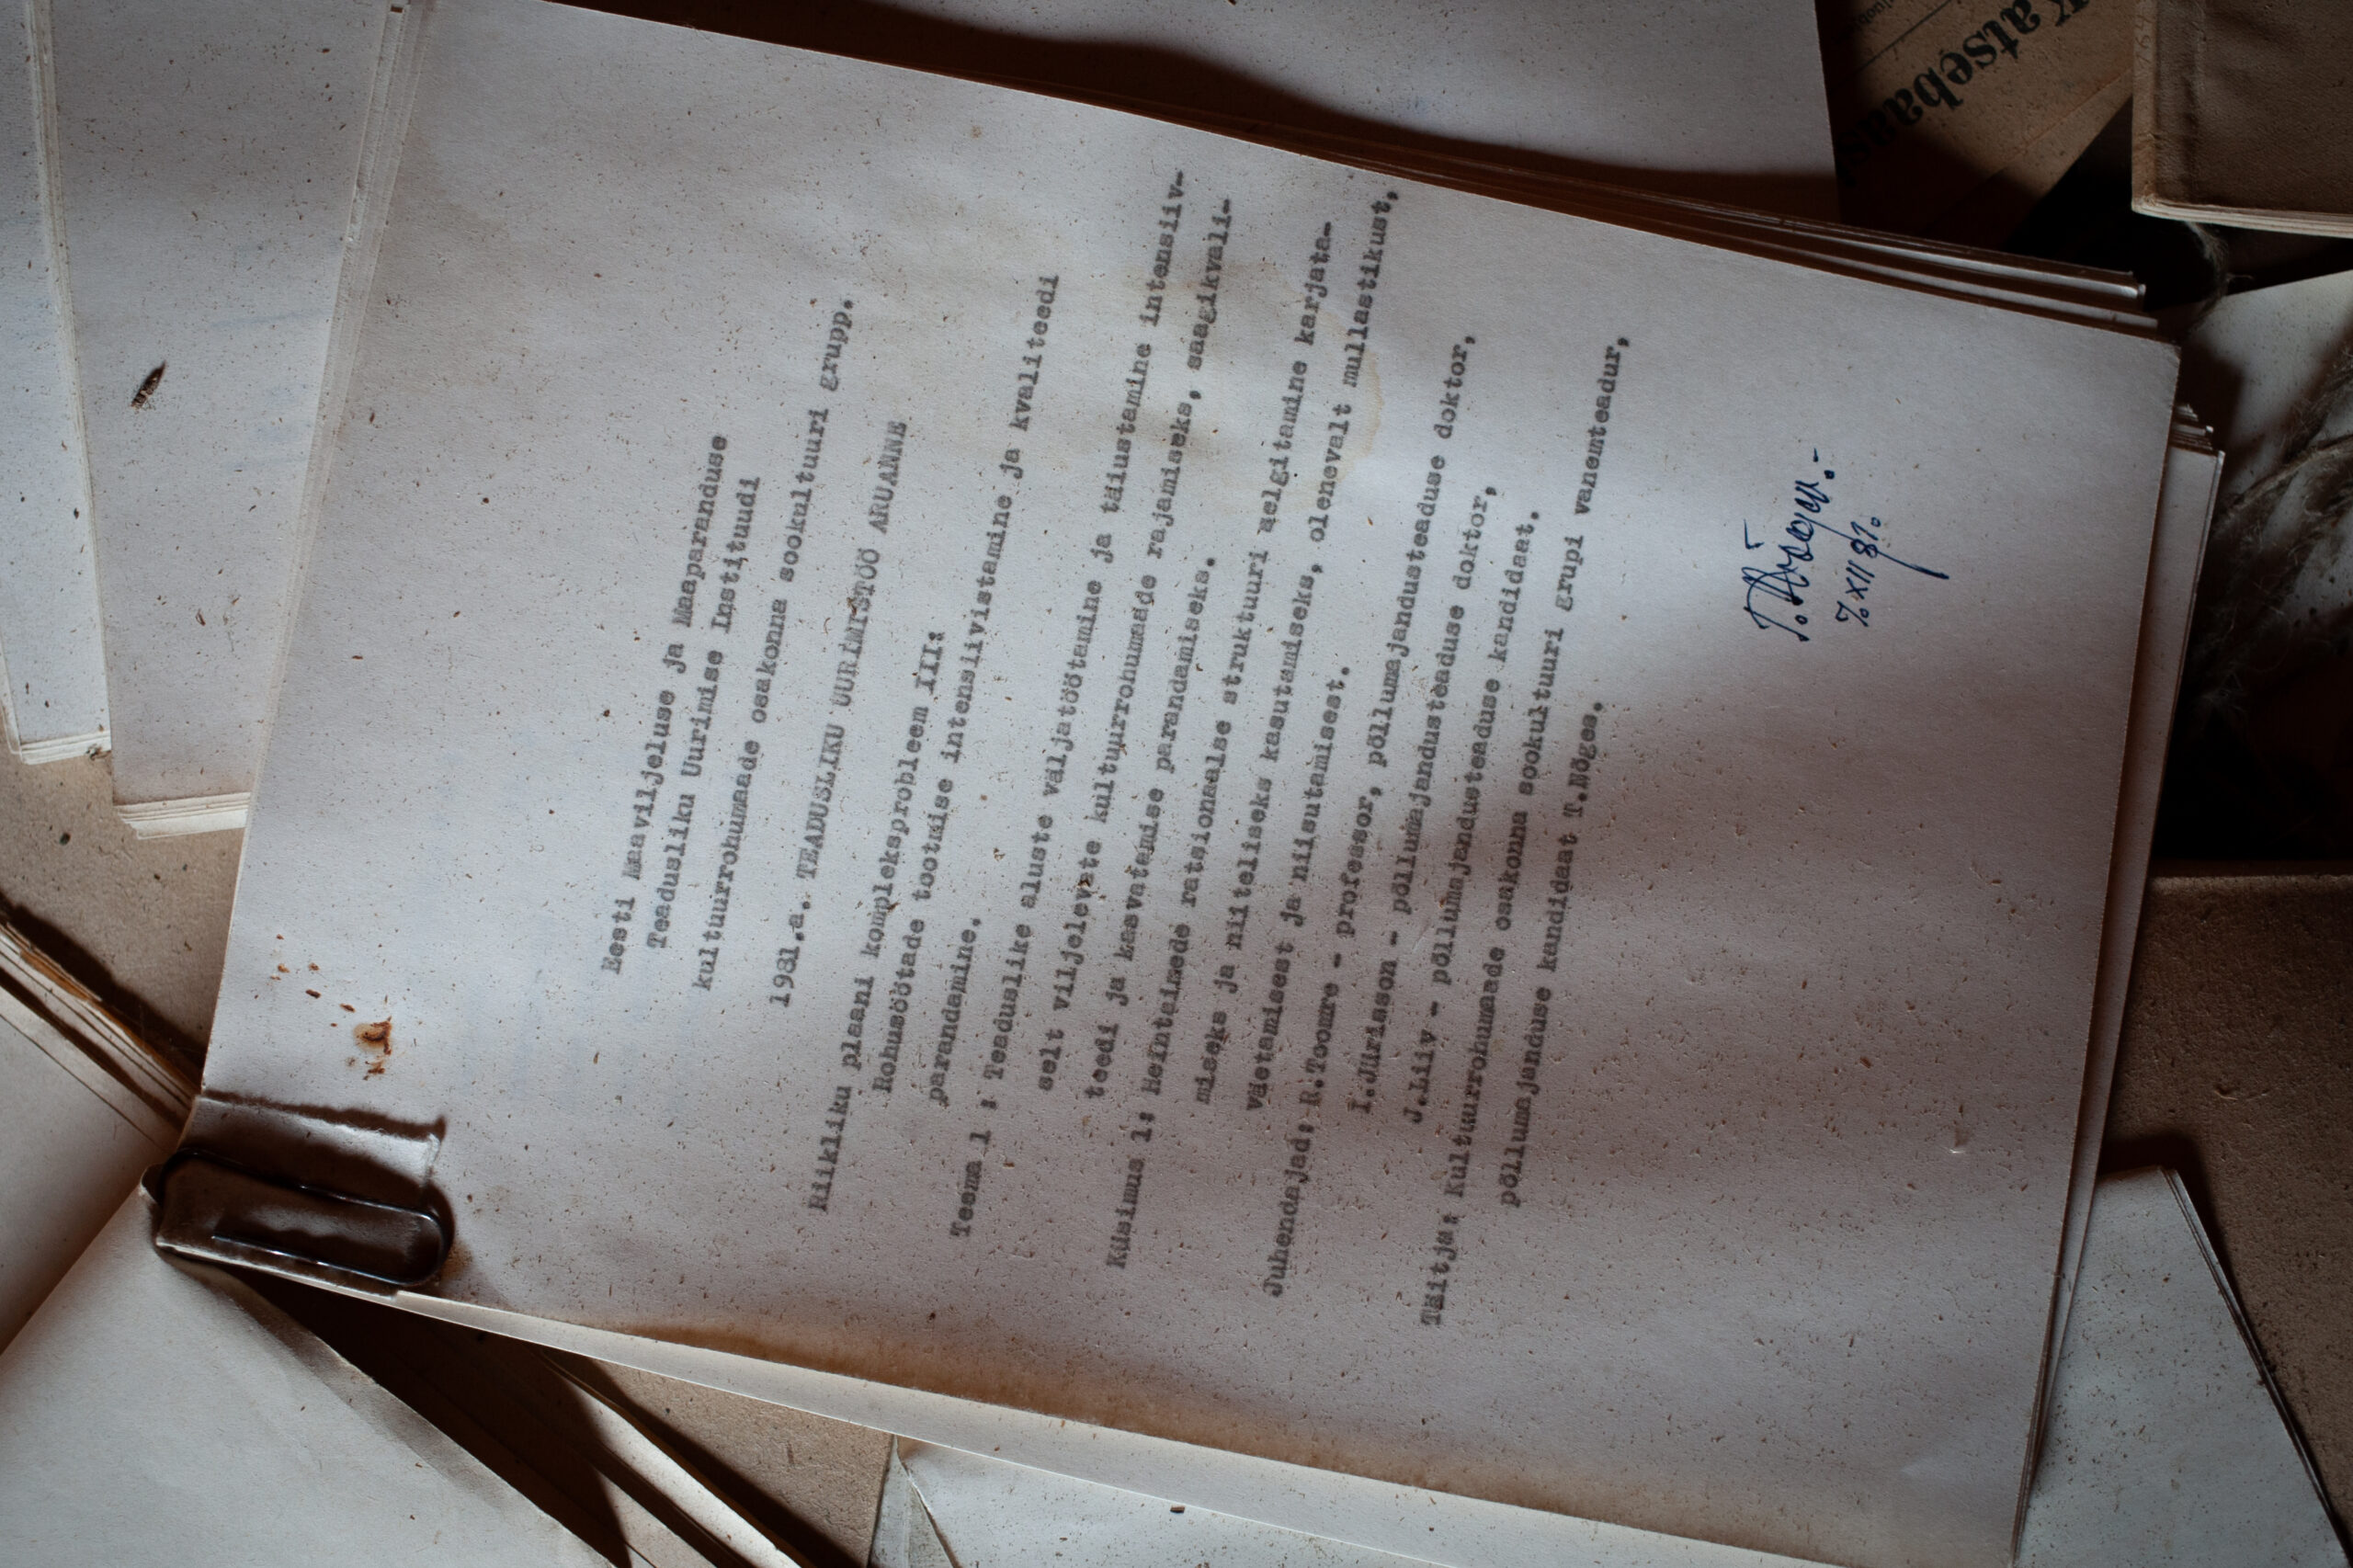 Eesti Maaviljeluse ja Maaparanduse
Teadusliku Uurimise Instituudi
kultuurrohumaade osakonna sookultuuri grupp.
1981.a. TEADUSLIKU UURIMISTÖÖ ARUANNE
Riikliku plaani kompleksprobleem III:
Rohusöötade tootmise intensiivistamine ja kvaliteedi
parandamine.
Teema 1 : Teaduslike aluste väljatöötamine ja täiustamine intensiiv-
selt viljelevate kultuurrohumaade rajamiseks, saagikvali-
teedi ja kasvatamise parandamiseks.
Küsimus 1: Heintaimede ratsionaalse struktuuri selgitamine karjata-
miseks ja niiteliseks kasutamiseks, olenevalt mullastikust,
väetamisest ja niisutamisest.
Juhendajad: R.Toomre - professor, põllumajandusteaduse doktor,
I.Jürisson - põllumajandusteaduse doktor,
J.Liiv - põllumajandusteaduse kandidaat.
Täitja: Kultuurrohumaade osakonna sookultuuri grupi vanemteadur,
põllumajanduse kandidaat T.Nõges.
7.XII 81.